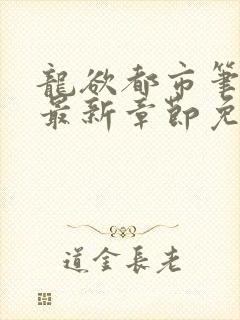 龍欲都市筆
最新章節免
道金長老